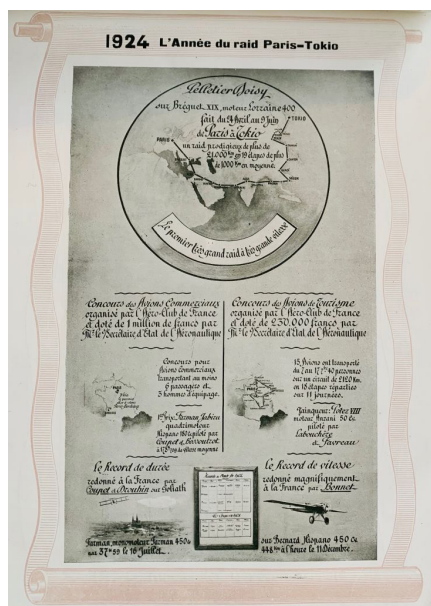 1924 L'Année du raid Paris-Tokio
Pelletier Doisy
sur Bréguet XIX, moteur Lorraine 400
fait du 24 Avril au 9 Juin
de Paris à Tokio
un raid prodigieux de plus de
21.000 km en 19 étapes de plus
de 1000 km en moyenne.
PARIS
TOKIO
Le premier très grand raid à très grande vitesse
Concours des Avions Commerciaux
organisé par l'Aéro-Club de France
et doté de 1 million de francs par
Mr le Secrétaire d'Etat de l'Aéronautique
Concours pour
Avions commerciaux
transportant au moins
6 passagers et
3 hommes d'équipage.
PARIS
Prix: Farman Jabiru
quadrimoteur
Hispano 180 piloté par
Coupet
de vitesse moyenne
Concours des Avions de Tourisme
organisé par l'Aéro-Club de France
et doté de 250.000 francs par
Mr le Secrétaire d'Etat de l'Aéronautique
15 Avions ont transporté
du 2 au 17
40 personnes
sur un circuit de 2120 Km.
en 18 étapes réparties
sur 11 journées.
Vainqueur: Potez VIII
moteur Anzani 50 cv.
piloté par
Labouchère
&
Le Record de durée
redonné à la France par
Coupet & Drouhin sur Goliath
Farman, monomoteur Farman 450 cv
par 37h 59 le 16 Juillet.
Le Record de vitesse
redonné magnifiquement
à la France par Bonnet
sur Bernard Hispano 450 Cv.
448 km à l'heure le 11 Décembre.